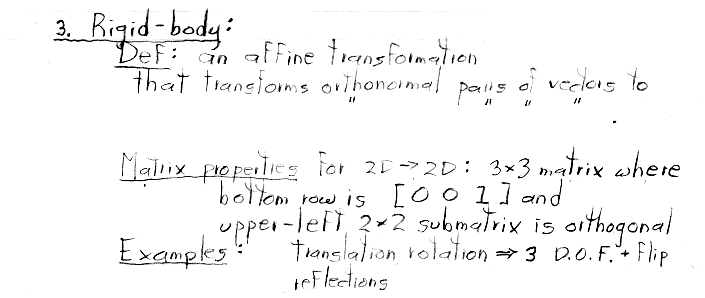 3. Rigid-body:
Def: an affine transformation
that transforms orthonormal pairs of vectors to
" " " "
.
Matrix properties for 2D → 2D: 3×3 matrix where
bottom row is [0 0 1] and
upper-left 2×2 submatrix is orthogonal
Examples: translation rotation ⇒ 3 D.O.F. + flip
reflections